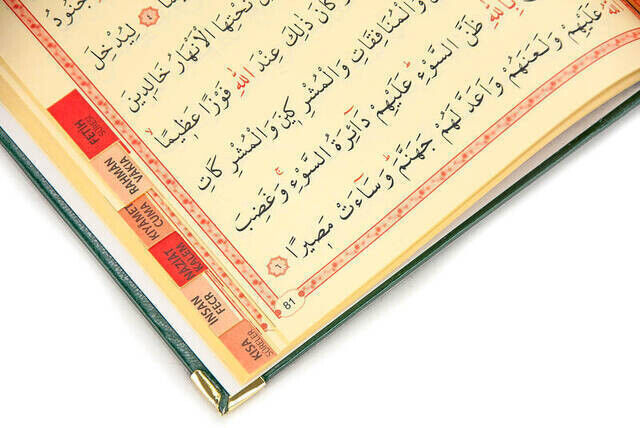 جُنُودُ
٤ لِيُدْخِلَ
تَحْتِهَا الْاَنْهَارُ خَالِدِينَ
كَانَ ذٰلِكَ عِنْدَ اللهِ فَوْزًا عَظِيمًا
وَالْمُنَافِقَاتِ وَالْمُشْرِكِينَ وَالْمُشْرِكَاتِ
بِاللهِ ظَنَّ السَّوْءِ عَلَيْهِمْ دَآئِرَةُ السَّوْءِ وَغَضِبَ
عَلَيْهِمْ وَلَعَنَهُمْ وَاَعَدَّ لَهُمْ جَهَنَّمَ وَسَآءَتْ مَصِيرًا ٦
81
FETİH
SURESİ
RAHMAN
VAKIA
KIYAMET
CUMA
NAZİAT
KALEM
İNSAN
FECR
KISA
SURELER